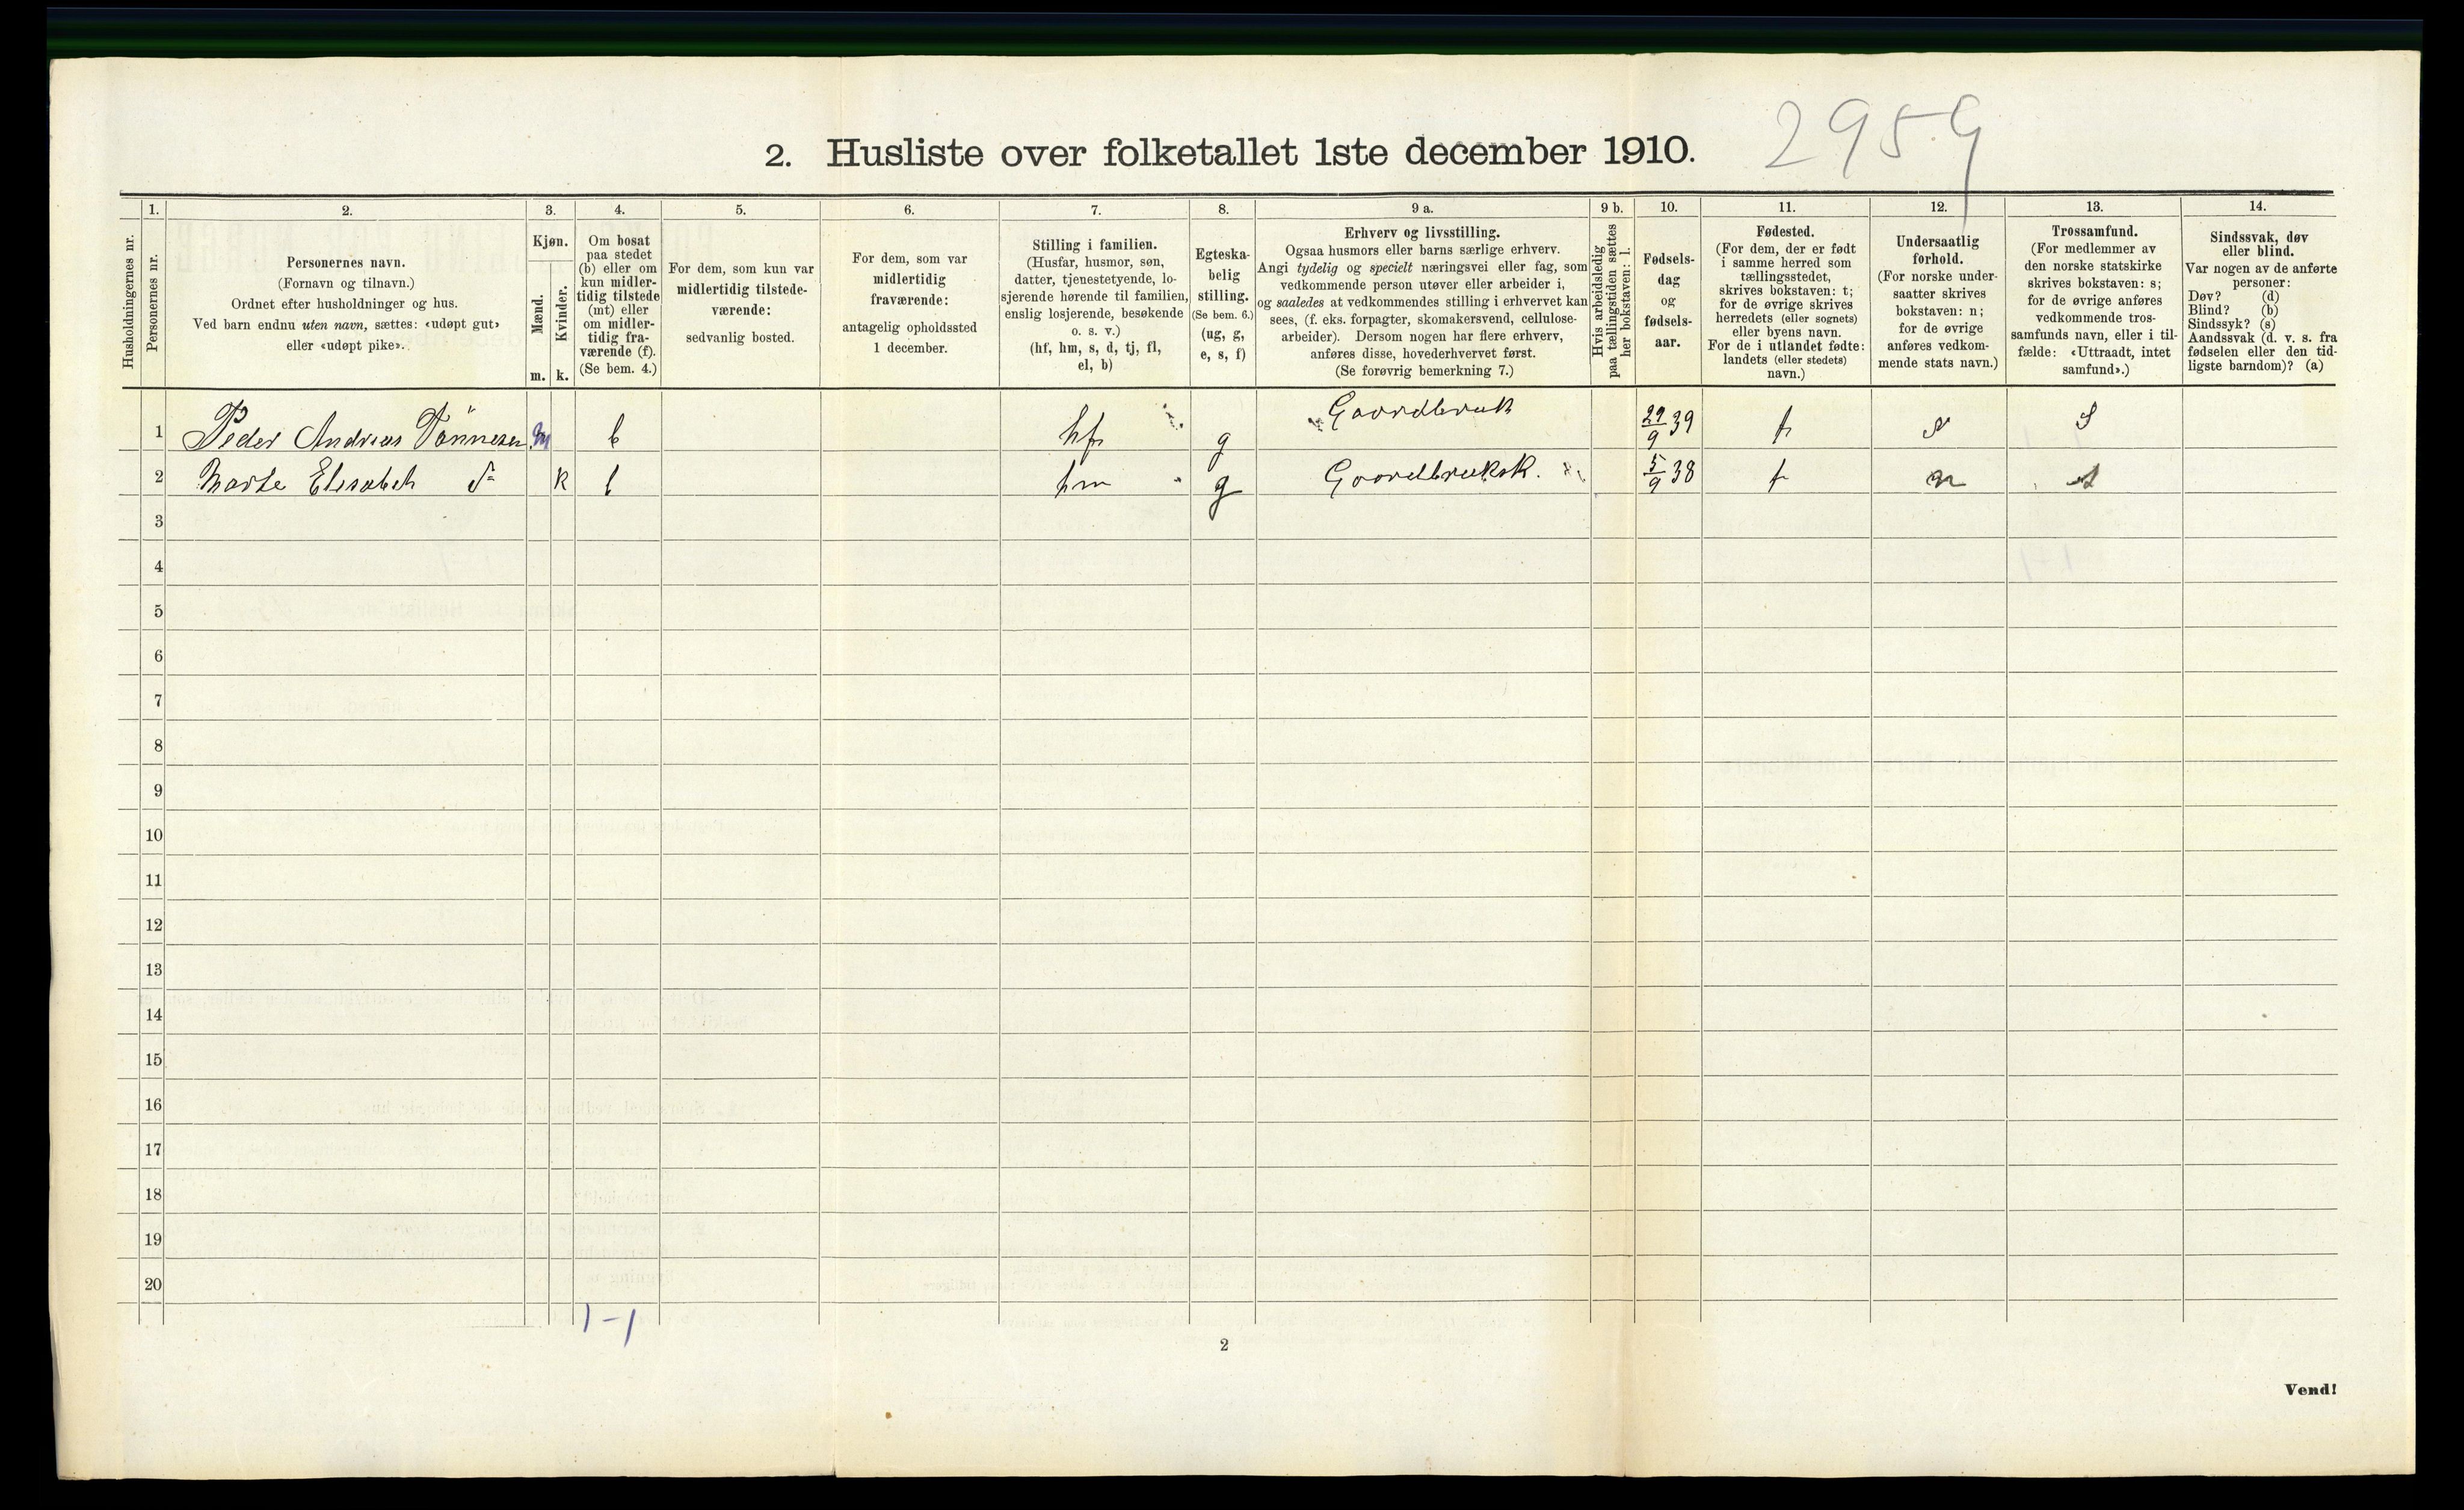 2959
2. Husliste over folketallet 1ste december 1910.
Husholdningernes nr.
1.
Personernes nr.
2.
Personernes navn.
(Fornavn og tilnavn.)
Ordnet efter husholdninger og hus.
Ved barn endnu uten navn, sættes: «udøpt gut»
eller «udøpt pike».
3.
Kjøn.
Mænd.
Kvinder.
m. k.
4.
Om bosat
paa stedet
(b) eller om
kun midler-
tidig tilstede
(mt) eller
om midler-
tidig fra-
værende (f).
(Se bem. 4.)
5.
For dem, som kun var
midlertidig tilstede-
værende:
sedvanlig bosted.
6.
For dem, som var
midlertidig
fraværende:
antagelig opholdssted
1 december.
7.
Stilling i familien.
(Husfar, husmor, søn,
datter, tjenestetyende, lo-
sjerende hørende til familien,
enslig losjerende, besøkende
o. s. v.)
(hf, hm, s, d, tj, fl,
el, b)
8.
Egteska-
belig
stilling.
(Se bem. 6.)
(ug, g,
e, s, f)
9 a.
Erhverv og livsstilling.
Ogsaa husmors eller barns særlige erhverv.
Angi tydelig og specielt næringsvei eller fag, som
vedkommende person utøver eller arbeider i,
og saaledes at vedkommendes stilling i erhvervet kan
sees, (f. eks. forpagter, skomakersvend, cellulose-
arbeider). Dersom nogen har flere erhverv,
anføres disse, hovederhvervet først.
(Se forøvrig bemerkning 7.)
9 b.
Hvis arbeidsledig
paa tællingstiden sættes
her bokstaven: l.
10.
Fødsels-
dag
og
fødsels-
aar.
11.
Fødested.
(For dem, der er født
i samme herred som
tællingsstedet,
skrives bokstaven: t;
for de øvrige skrives
herredets (eller sognets)
eller byens navn.
For de i utlandet fødte:
landets (eller stedets)
navn.)
12.
Undersaatlig
forhold.
(For norske under-
saatter skrives
bokstaven: n;
for de øvrige
anføres vedkom-
mende stats navn.)
13.
Trossamfund.
(For medlemmer av
den norske statskirke
skrives bokstaven: s;
for de øvrige anføres
vedkommende tros-
samfunds navn, eller i til-
fælde: «Uttraadt, intet
samfund».)
14.
Sindssvak, døv
eller blind.
Var nogen av de anførte
personer:
Døv? (d)
Blind? (b)
Sindssyk? (s)
Aandssvak (d. v. s. fra
fødselen eller den tid-
ligste barndom)? (a)
1 Peder Andreas Tönnesen m b hf g Gaardbruk 29/9 39 t n S
2 Marte Elisabeth T= k b hm g Gaardbruksk. 5/9 38 t n s
3
4
5
6
7
8
9
10
11
12
13
14
15
16
17
18
19
20
1-1
2
Vend!